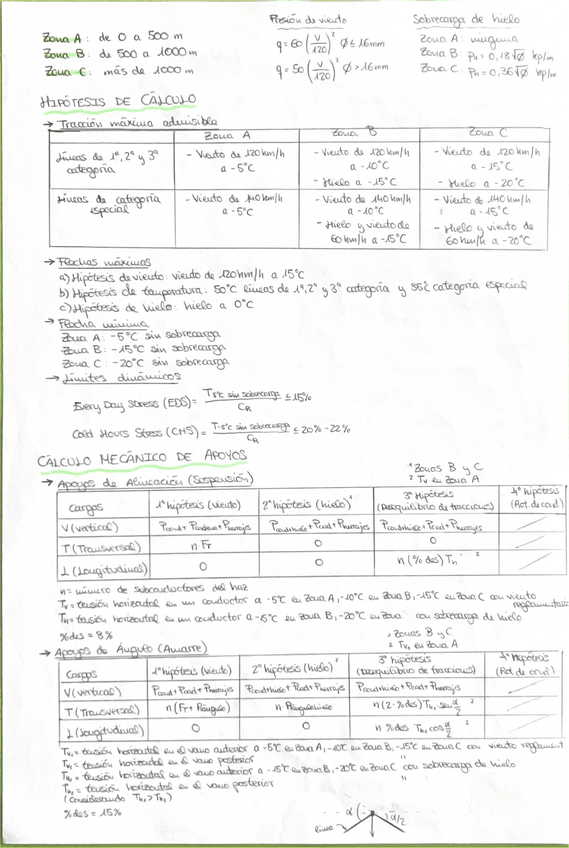 Zona A: de 0 a 500 m
Zona B: de 500 a 1000 m
Zona C: más de 1000 m
Presión de viento
q = 60 (v/120)² Ø ≤ 16mm
q = 50 (v/120)² Ø > 16mm
Sobrecarga de hielo
Zona A: ninguna
Zona B: Pₕ = 0,18√Ø kp/m
Zona C: Pₕ = 0,36√Ø kp/m
HIPÓTESIS DE CÁLCULO
→ Tracción máxima admisible
Zona A Zona B Zona C
Líneas de 1ª, 2ª y 3ª categoría
- Viento de 120 km/h a -5°C
- Viento de 120 km/h a -10°C
- Hielo a -15°C
- Viento de 120 km/h a -15°C
- Hielo a -20°C
Líneas de categoría especial
- Viento de 140 km/h a -5°C
- Viento de 140 km/h a -10°C
- Hielo y viento de 60 km/h a -15°C
- Viento de 140 km/h a -15°C
- Hielo y viento de 60 km/h a -20°C
→ Flechas máximas
a) Hipótesis de viento: viento de 120 km/h a 15°C
b) Hipótesis de temperatura: 50°C líneas de 1ª, 2ª y 3ª categoría y 85°C categoría especial
c) Hipótesis de hielo: hielo a 0°C
→ Flecha mínima
Zona A: -5°C sin sobrecarga
Zona B: -15°C sin sobrecarga
Zona C: -20°C sin sobrecarga
→ Límites dinámicos
Every Day Stress (EDS) = T 15°C sin sobrecarga / C_R ≤ 15%
Cold Hours Stress (CHS) = T -5°C sin sobrecarga / C_R ≤ 20% - 22%
CÁLCULO MECÁNICO DE APOYOS
¹ Zonas B y C
² Tv en Zona A
→ Apoyos de Alineación (Suspensión)
Cargas 1ª hipótesis (viento) 2ª hipótesis (hielo)¹ 3ª Hipótesis (Desequilibrio de tracciones) 4ª hipótesis (Rot. de cond.)
V (vertical) Pcond + Pcadena + Pherrajes Pcond+hielo + Pcad + Pherrajes Pcond+hielo + Pcad + Pherrajes
T (Transversal) n Fr 0 0
L (Longitudinal) 0 0 n (% des) Tₕ ²
n = número de subconductores del haz
Tv = tensión horizontal en un conductor a -5°C en Zona A, -10°C en Zona B, -15°C en Zona C con viento reglamentario
Tₕ = tensión horizontal en un conductor a -15°C en Zona B, -20°C en Zona C con sobrecarga de hielo
% des = 8%
¹ Zonas B y C
² Tv₁ en Zona A
→ Apoyos de Ángulo (Amarre)
Cargas 1ª hipótesis (viento) 2ª hipótesis (hielo)¹ 3ª hipótesis (Desequilibrio de tracciones) 4ª hipótesis (Rot. de cond.)
V (Vertical) Pcond + Pcad + Pherrajes Pcond+hielo + Pcad + Pherrajes Pcond+hielo + Pcad + Pherrajes
T (Transversal) n (Fr + Rángulo) n Rángulohielo n (2-%des) Tₕ₁ sen α/2 ²
L (Longitudinal) 0 0 n %des Tₕ₁ cos α/2 ²
Tv₁ = tensión horizontal en el vano anterior a -5°C en Zona A, -10°C en Zona B, -15°C en Zona C con viento reglament
Tv₂ = tensión horizontal en el vano posterior "
Tₕ₁ = tensión horizontal en el vano anterior a -15°C en Zona B, -20°C en Zona C con sobrecarga de hielo
Tₕ₂ = tensión horizontal en el vano posterior "
(considerando Tₕ₁ > Tₕ₂)
% des = 15%
línea α α/2